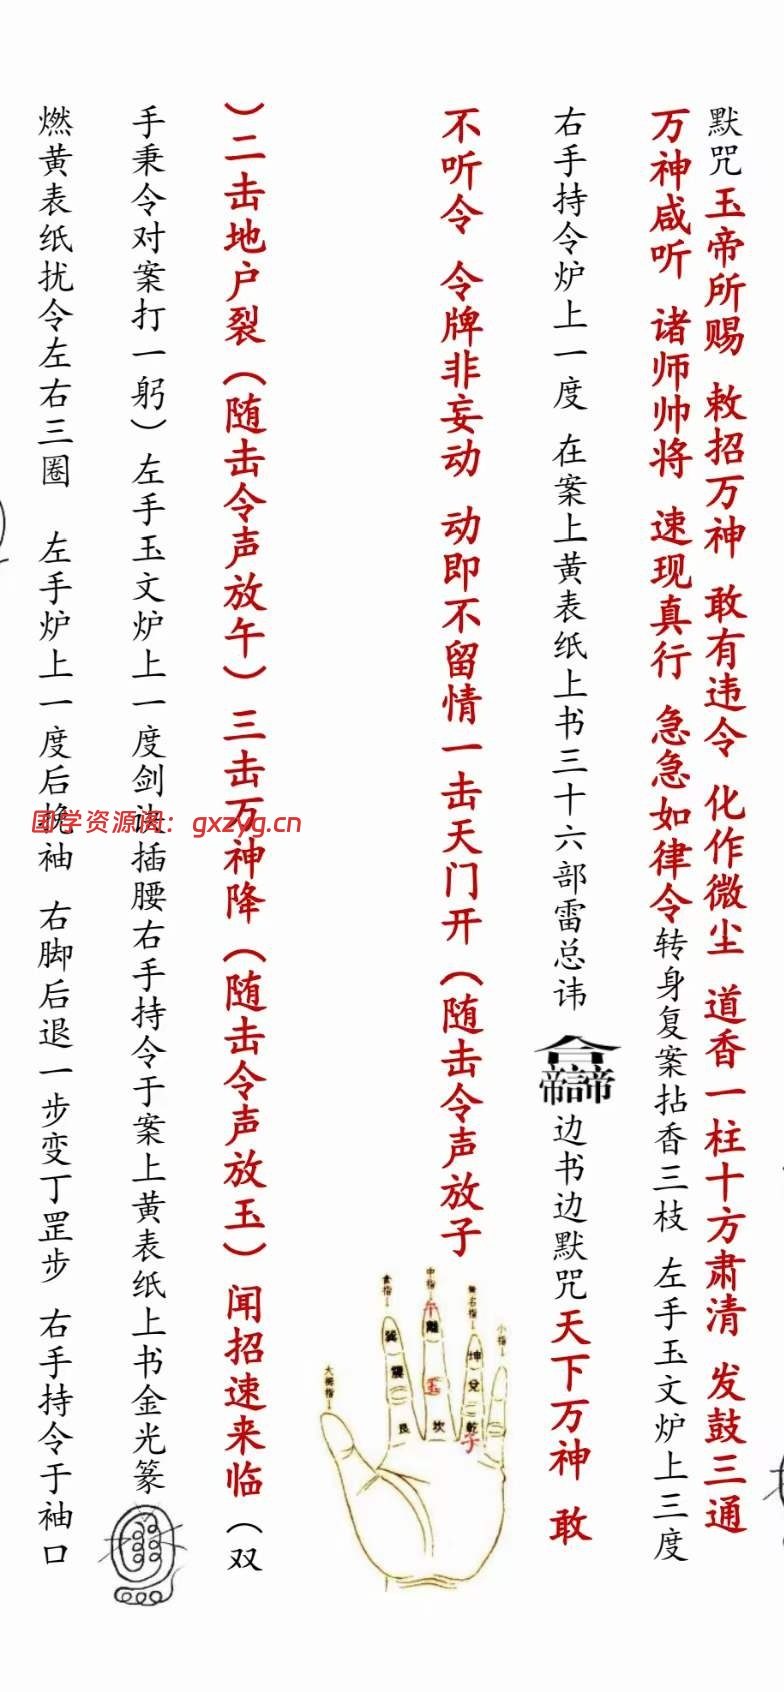 默咒玉帝所赐 敕招万神 敢有违令 化作微尘 道香一柱十方肃清 发鼓三通
万神咸听 诸师帅将 速现真行 急急如律令转身复案拈香三枝 左手玉文炉上三度
右手持令炉上一度 在案上黄表纸上书三十六部雷总讳
边书边默咒天下万神 敢
不听令 令牌非妄动 动即不留情一击天门开（随击令声放子
）二击地户裂（随击令声放午）三击万神降（随击令声放玉）闻招速来临（双
手秉令对案打一躬）左手玉文炉上一度剑诀插腰右手持令于案上黄表纸上书金光篆
燃黄表纸扰令左右三圈 左手炉上一度后挽袖 右脚后退一步变丁罡步 右手持令于袖口
大拇指
食指
中指
無名指
小指
午
離
巽
震
艮
玉
坎
坤
兌
乾
子
国学资源阁：gxzyg.cn